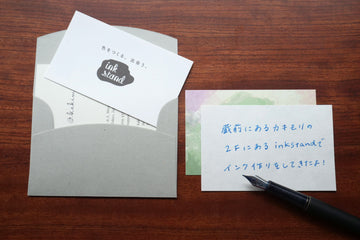 色をつくる、出会う。
ink
stand
蔵前にあるカキモリの
2Fにあるinkstandで
インク作りをしてきたよ!